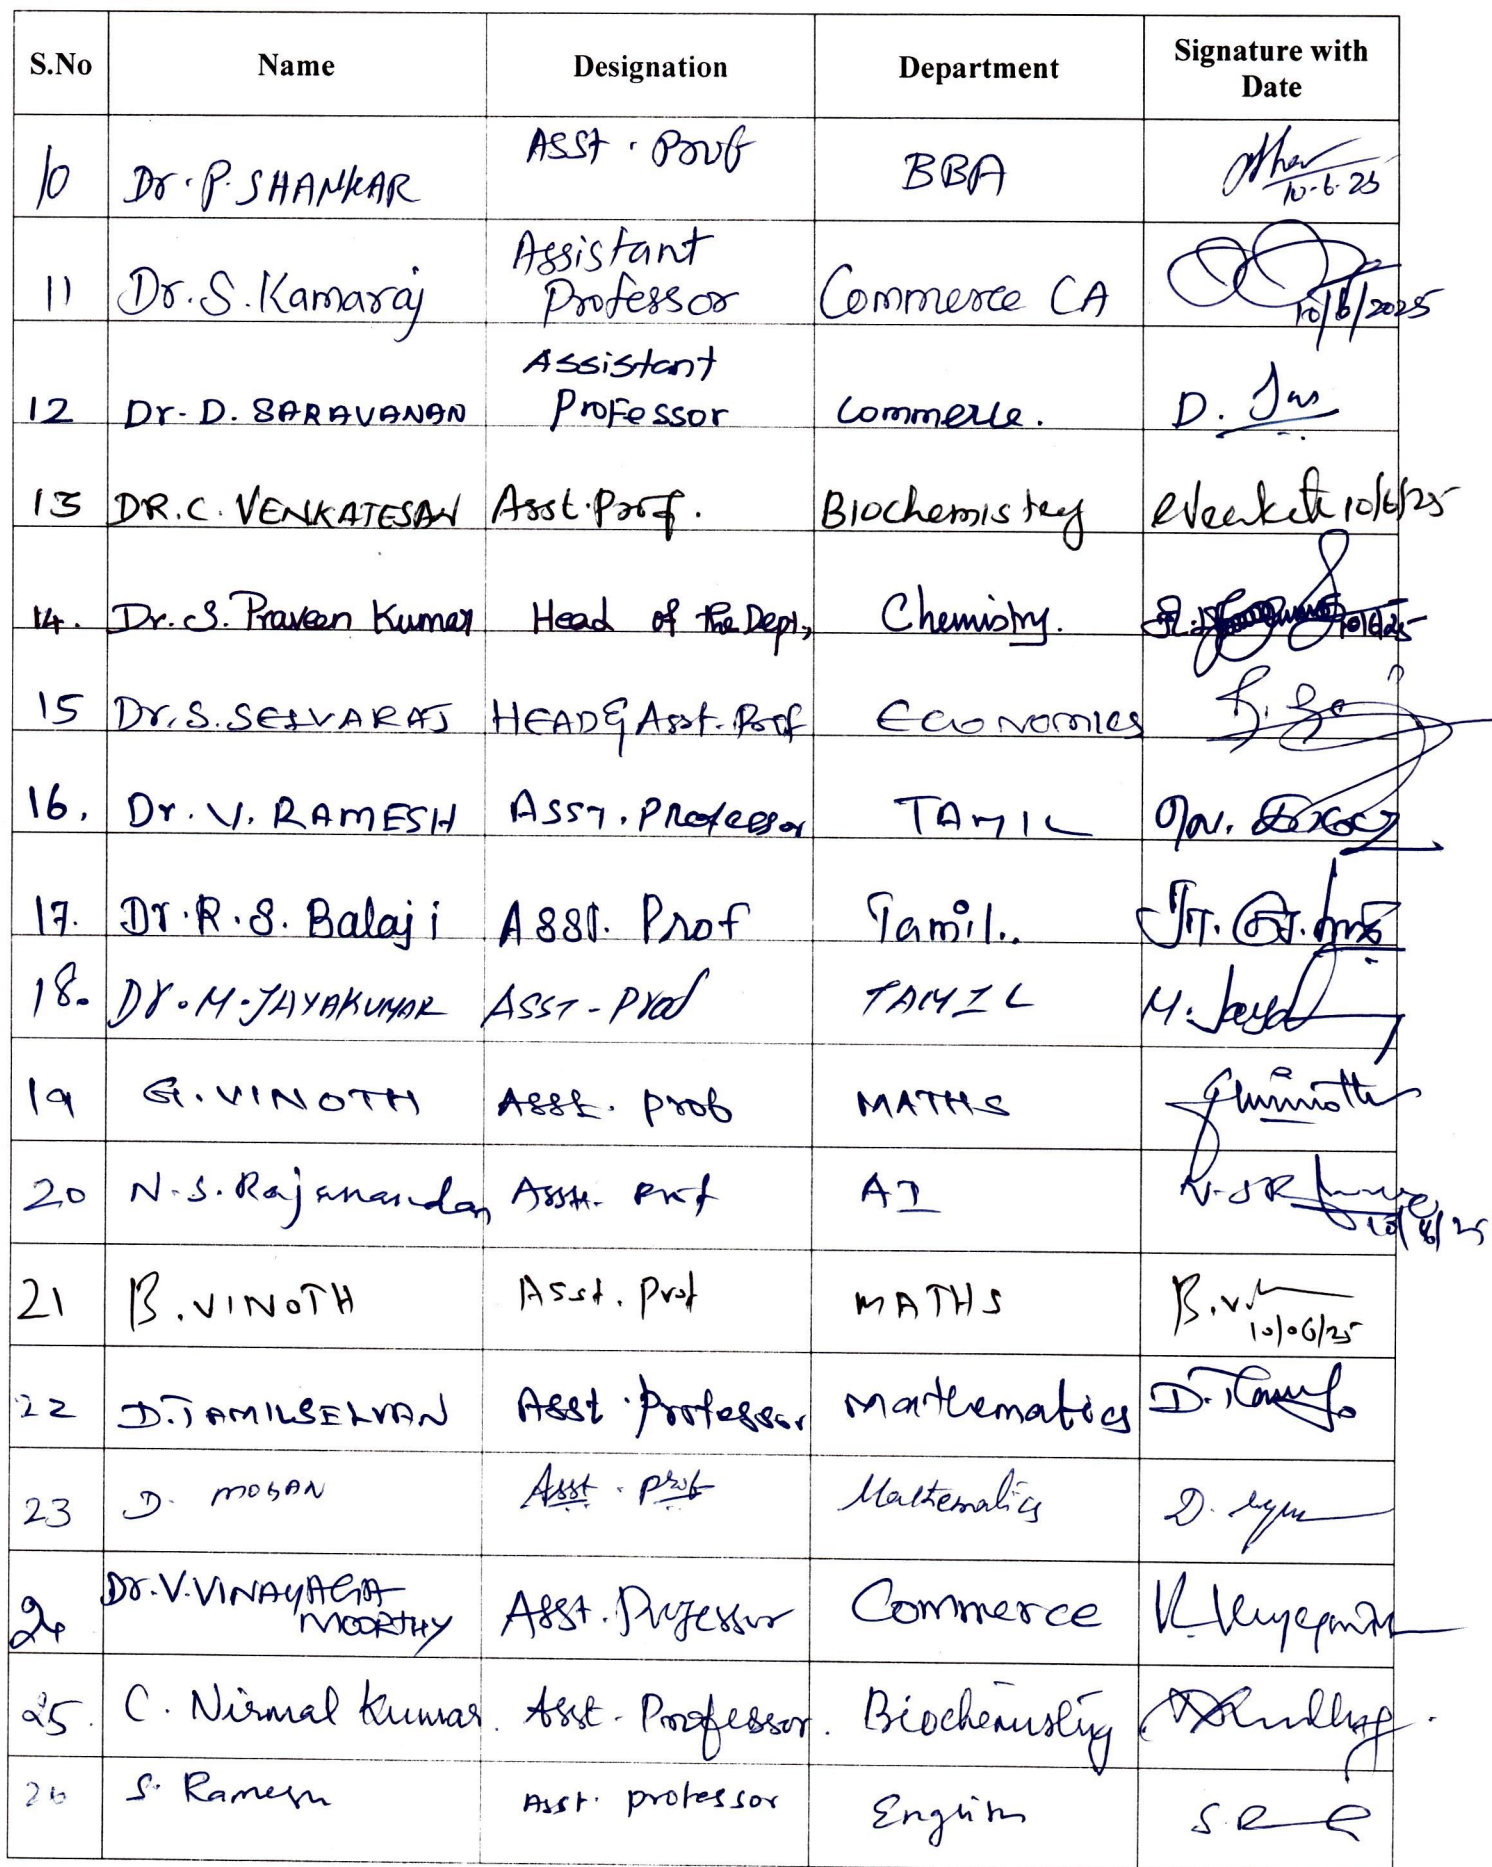 S.No Name Designation Department Signature with Date
10 Dr. P. SHANKAR Asst. Prof BBA 10-6-25
11 Dr. S. Kamaraj Assistant Professor Commerce CA 10/6/2025
12 Dr. D. SARAVANAN Assistant Professor Commerce. D.
13 DR. C. VENKATESAN Asst. Prof. Biochemistry 10/6/25
14. Dr. S. Praveen Kumar Head of the Dept, Chemistry. 10/6/25
15 Dr. S. SELVARAJ HEAD & Asst. Prof ECONOMICS
16. Dr. V. RAMESH ASST. Professor TAMIL
17. Dr. R. S. Balaji Asst. Prof Tamil.
18. Dr. M. JAYAKUMAR ASST-Prof TAMIL M. Jaya
19 G. VINOTH Asst. Prof MATHS
20 N. S. Rajanandan Asst. Prof AI 10/6/25
21 B. VINOTH Asst. Prof MATHS B. V 10/06/25
22 D. TAMILSELVAN Asst. Professor Mathematics
23 D. MOHAN Asst. Prof Mathematics D.
24 Dr. V. VINAYAGA MOORTHY Asst. Professor Commerce
25. C. Nirmal Kumar. Asst. Professor. Biochemistry
26 S. Ramesh Asst. professor English S. R